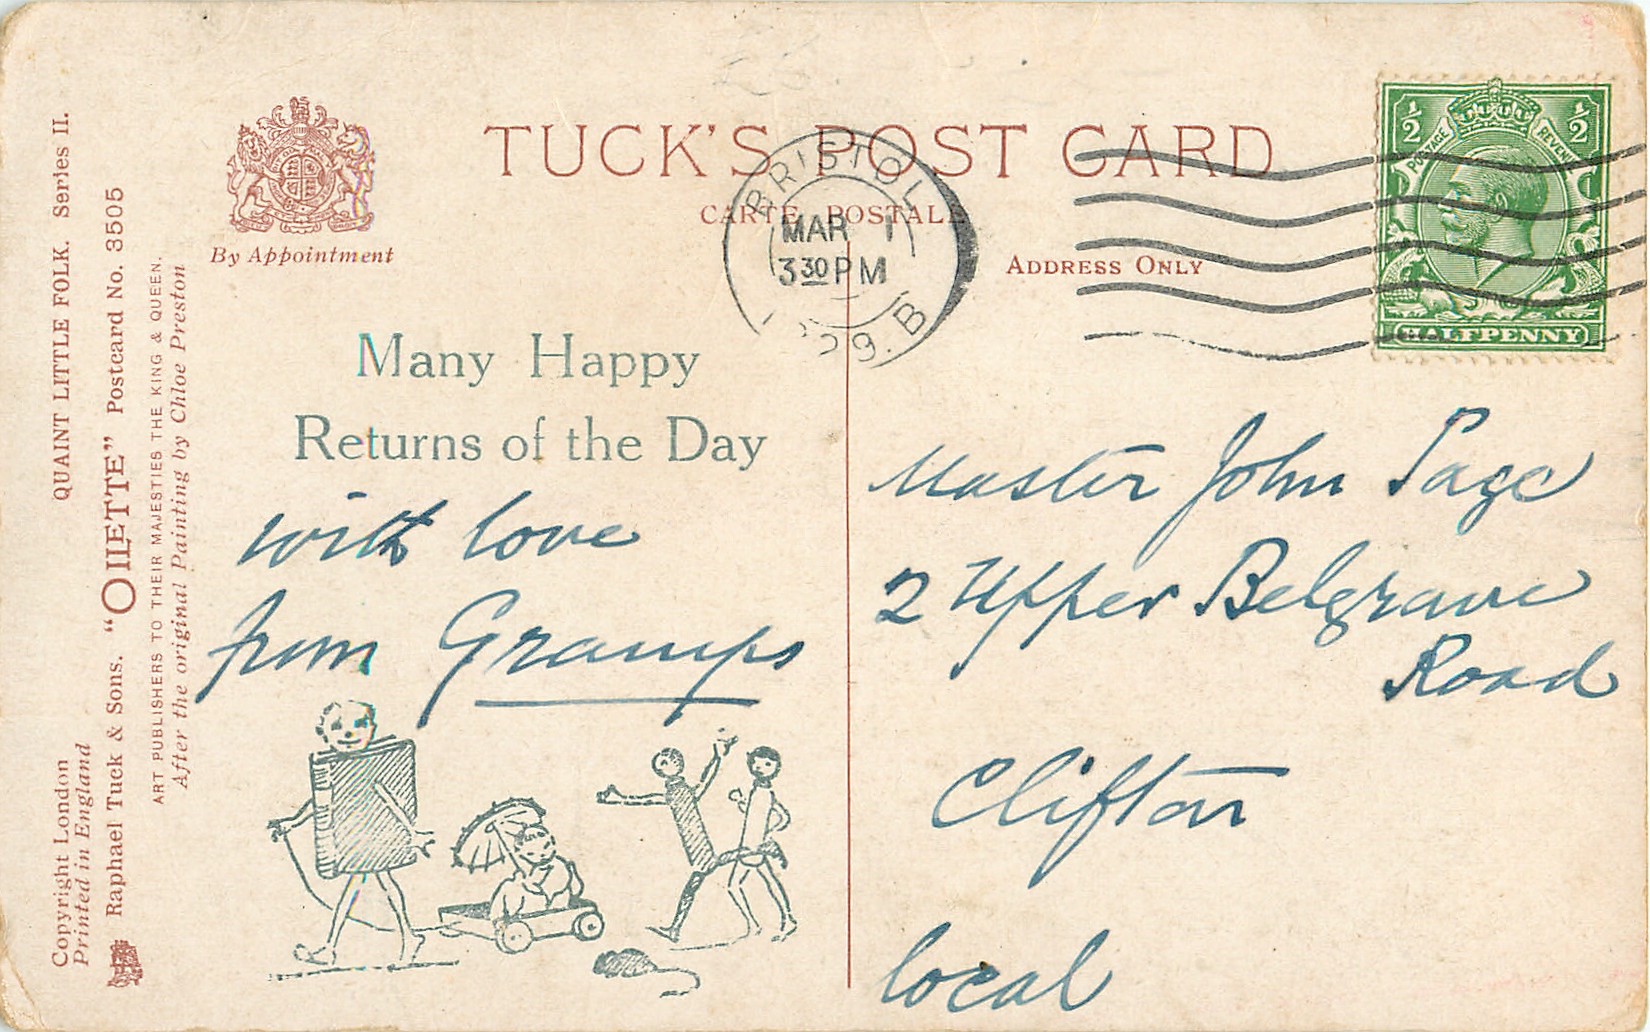 TUCK'S POST CARD
CARTE POSTALE
By Appointment
ADDRESS ONLY
BRISTOL
MAR 1
3 30 PM
9. B
½ ½
POSTAGE REVENUE
HALFPENNY
QUAINT LITTLE FOLK. Series II.
Raphael Tuck & Sons. "OILETTE" Postcard No. 3505
ART PUBLISHERS TO THEIR MAJESTIES THE KING & QUEEN.
After the original Painting by Chloe Preston
Copyright London
Printed in England
Many Happy
Returns of the Day
with love
from Gramps
Master John Page
2 Upper Belgrave
Road
Clifton
local